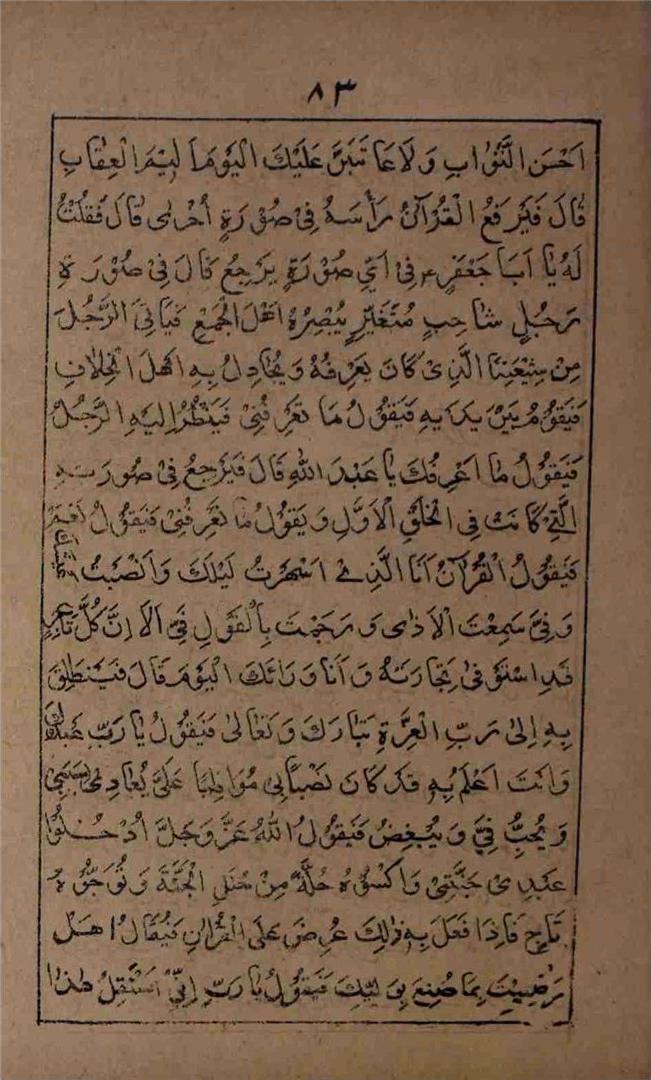 ٨٣
اَحْسَنَ الثَّوٰابِ وَلَاعَاقِبَنَّ عَلَيْكَ الْيَوْمَ اَلِيْمَ الْعِقٰابِ
قٰالَ فَيَرْفَعُ الْقُرْاٰنُ رَأْسَهُ فِىْ صُوْرَةٍ اُخْرٰى قٰالَ فَقُلْتُ
لَهُ يٰا اَبَا جَعْفَرٍ ع فِىْ اَىِّ صُوْرَةٍ يَرْجِعُ قَالَ فِىْ صُوْرَةِ
رَجُلٍ شَاحِبٍ مُتَغَيِّرٍ يُبْصِرُهُ اَهْلُ الْجَمْعِ فَيَاْتِىْ الرَّجُلَ
مِنْ شِيْعَتِنَا الَّذِىْ كَانَ يَعْرِفُهُ وَيُجٰادِلُ بِهِ اَهْلَ الْخِلٰافِ
فَيَقُوْمُ بَيْنَ يَدَيْهِ فَيَقُوْلُ مَا تَعْرِفُنِىْ فَيَنْظُرُ اِلَيْهِ الرَّجُلُ
فَيَقُوْلُ مٰا اَعْرِفُكَ يٰا عَبْدَ اللهِ قَالَ فَيَرْجِعُ فِىْ صُوْرَتِهِ
الَّتِىْ كَانَتْ فِى الْخَلْقِ الْاَوَّلِ وَيَقُوْلُ مٰا تَعْرِفُنِىْ فَيَقُوْلُ نَعَمْ
فَيَقُوْلُ الْقُرْاٰنُ اَنَا الَّذِىْ اَسْهَرْتُ لَيْلَكَ وَاَنْصَبْتُ
وَفِىَّ سَمِعْتَ الْاَذٰى وَرُجِمْتَ بِالْقَوْلِ فِىَّ اَلَا اِنَّ كُلَّ تَاجِرٍ
قَدِ اسْتَوْفٰى تِجَارَتَهُ وَاَنَا وَرَائَكَ الْيَوْمَ قَالَ فَيَنْطَلِقُ
بِهِ اِلٰى رَبِّ الْعِزَّةِ تَبَارَكَ وَتَعَالىٰ فَيَقُوْلُ يٰا رَبِّ عَبْدُكَ
وَاَنْتَ اَعْلَمُ بِهِ قَدْ كَانَ نَصْبًا بِىْ مُوَاظِبًا عَلَىَّ يُعَادِىْ بِسَبَبِىْ
وَيُحِبُّ فِىَّ وَيُبْغِضُ فَيَقُوْلُ اللهُ عَزَّ وَجَلَّ اَدْخِلُوْا
عَبْدِىْ جَنَّتِىْ وَاكْسُوْهُ حُلَّةً مِنْ حُلَلِ الْجَنَّةِ وَتَوِّجُوْهُ
تَاجٍ فَاِذَا فَعَلَ بِهِ ذٰلِكَ عُرِضَ عَلَى الْقُرْاٰنِ فَيُقَالُ هَلْ
رَضِيْتَ بِمَا صُنِعَ بِوَلِيِّكَ فَيَقُوْلُ يٰا رَبِّ اِنِّىْ اَسْتَقِلُّ هٰذٰا